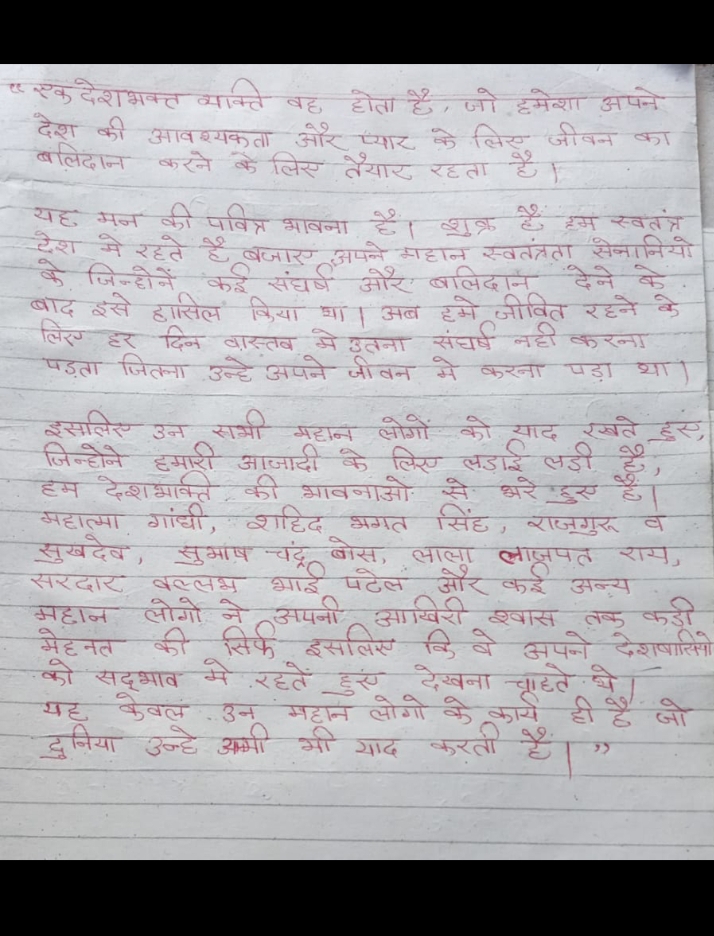 “एक देशभक्त व्यक्ति वह होता है, जो हमेशा अपने
देश की आवश्यकता और प्यार के लिए जीवन का
बलिदान करने के लिए तैयार रहता है।
यह मन की पवित्र भावना है। शुक्र है हम स्वतंत्र
देश मे रहते है बजाए अपने महान स्वतंत्रता सेनानियो
के जिन्होनें कई संघर्ष और बलिदान देने के
बाद इसे हासिल किया था। अब हमे जीवित रहने के
लिए हर दिन वास्तव मे उतना संघर्ष नही करना
पड़ता जितना उन्हे अपने जीवन मे करना पड़ा था।
इसलिए उन सभी महान लोगों को याद रखते हुए,
जिन्होने हमारी आजादी के लिए लडाई लडी है,
हम देशभक्ति की भावनाओ से भरे हुए है।
महात्मा गांधी, शहिद भगत सिंह, राजगुरू व
सुखदेव, सुभाष चंद्र बोस, लाला लाजपत राय,
सरदार वल्लभ भाई पटेल और कई अन्य
महान लोगो ने अपनी आखिरी श्वास तक कड़ी
मेहनत की सिर्फ इसलिए कि वे अपने देशवासियो
को सद्भाव मे रहतें हुए देखना चाहते थे।
यह केवल उन महान लोगो के कार्य ही है जो
दुनिया उन्हे अभी भी याद करती है।”